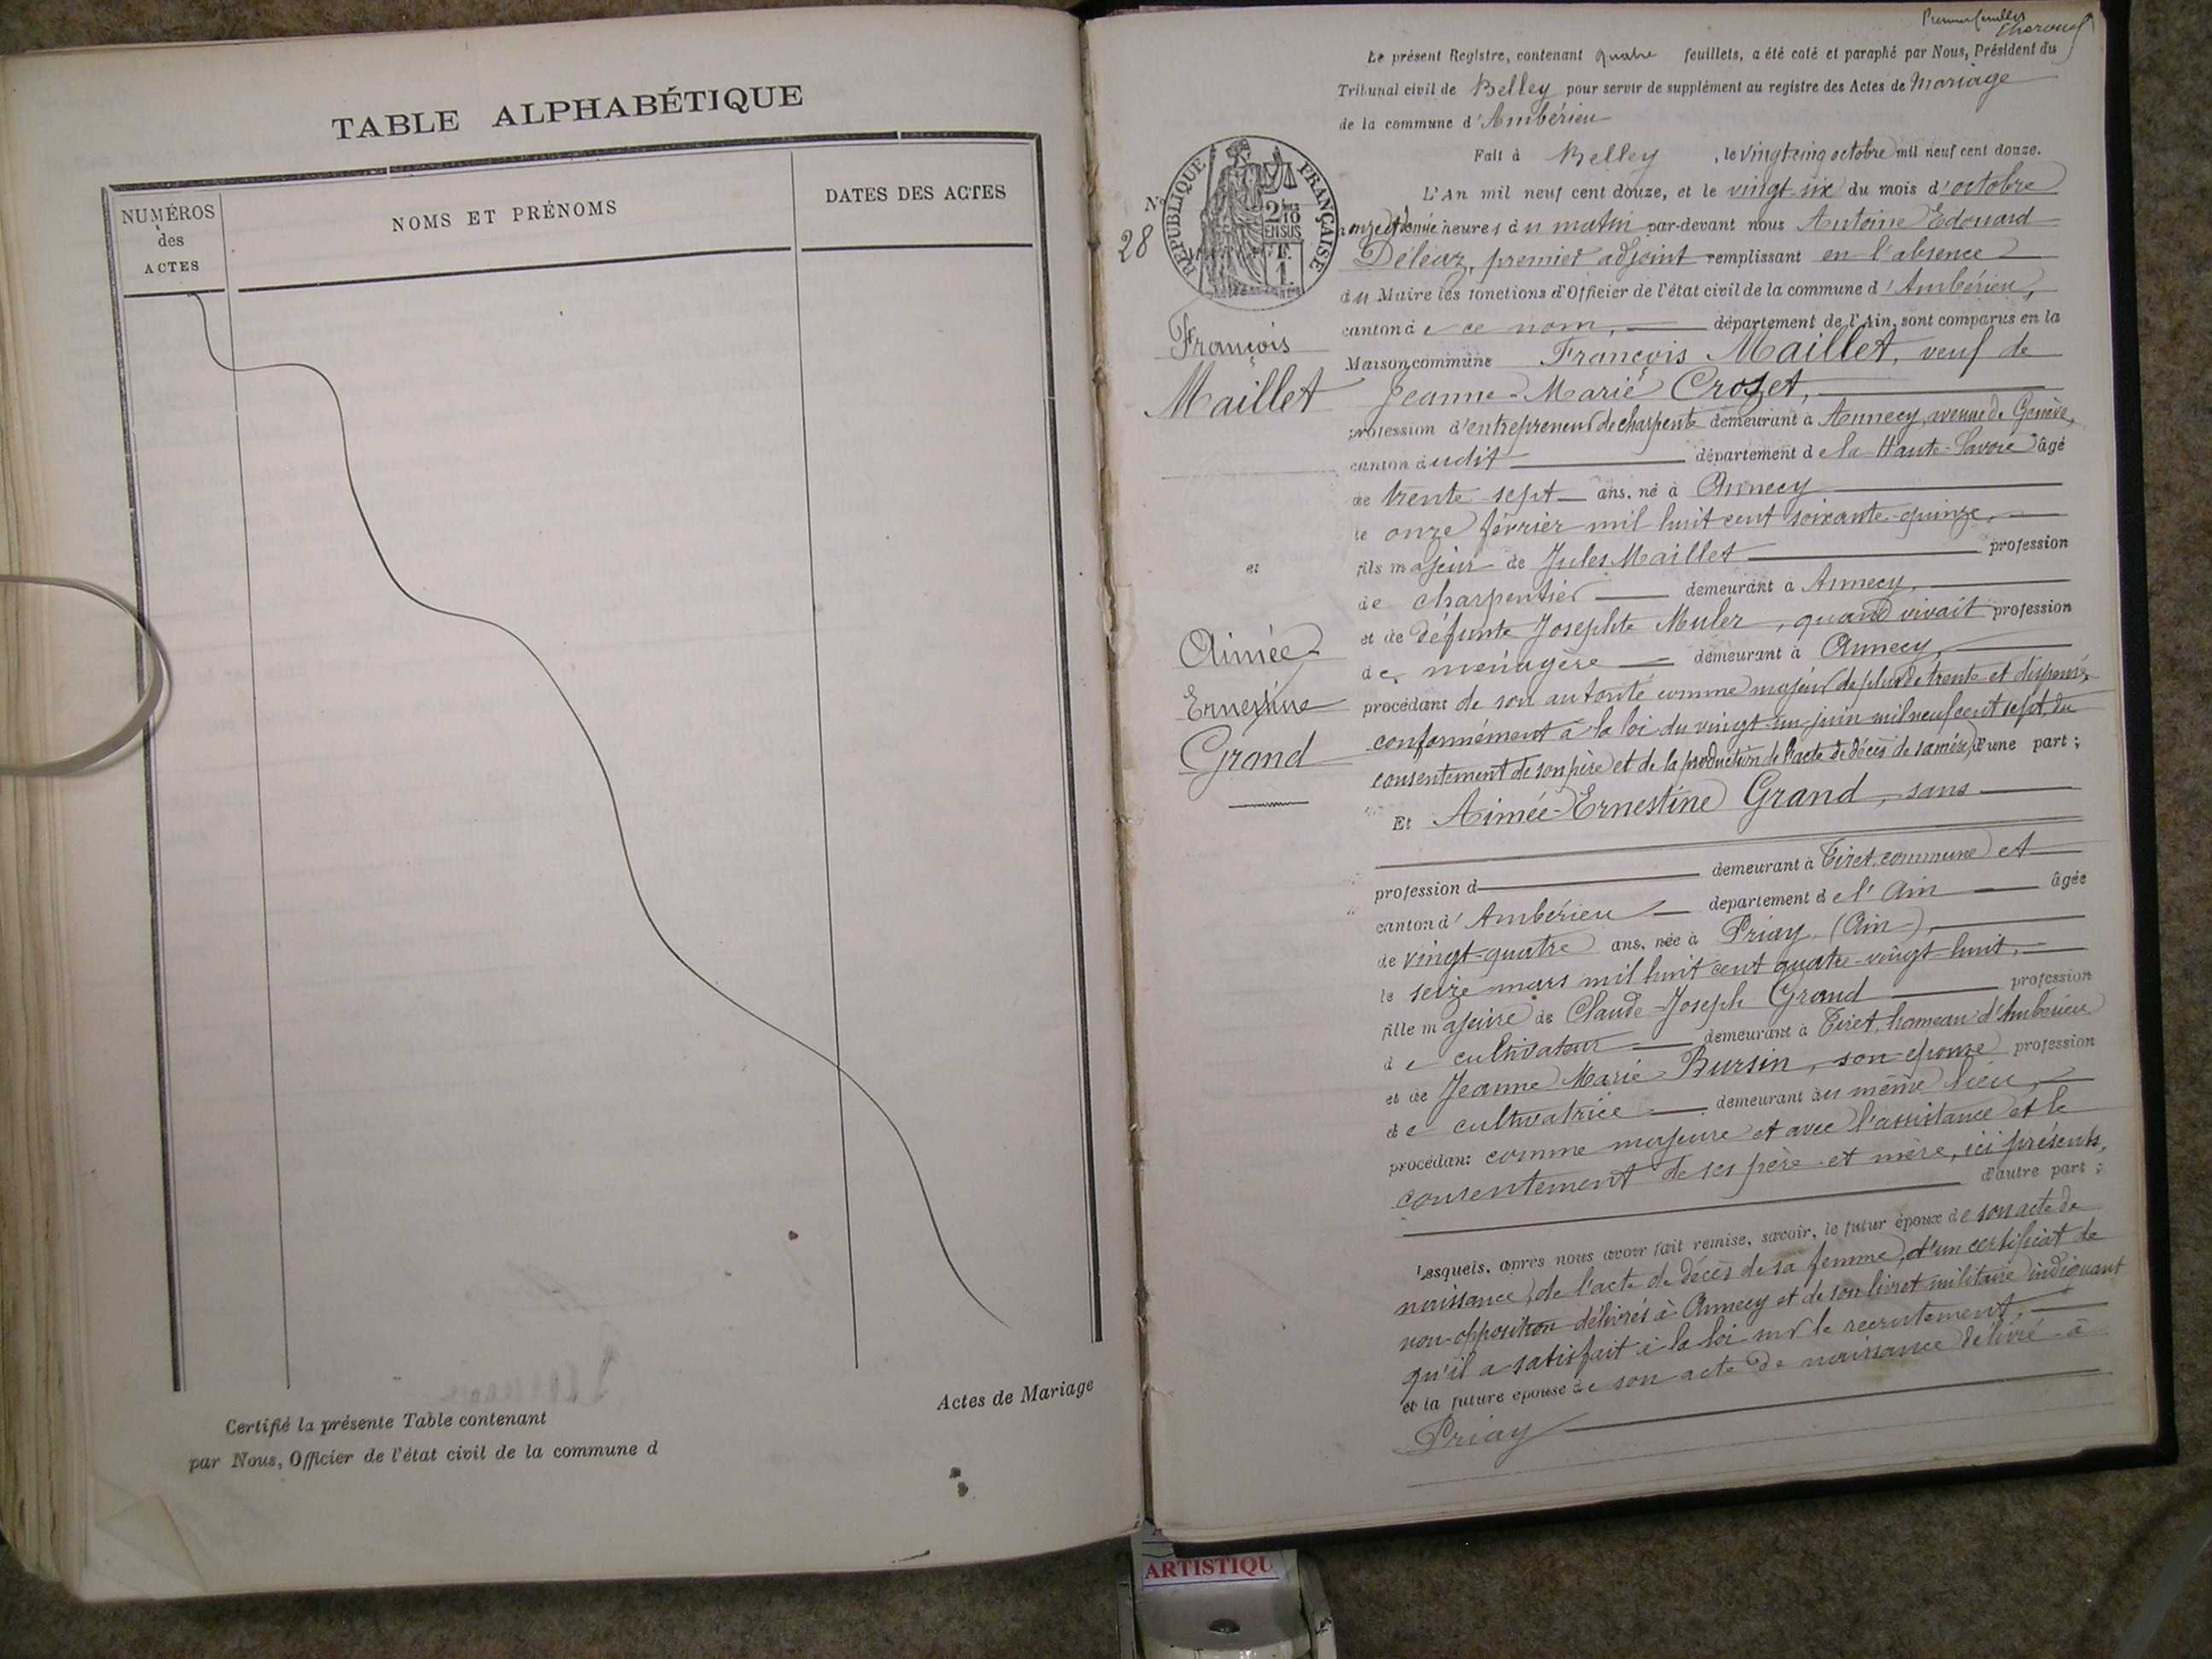 TABLE ALPHABÉTIQUE
NUMÉROS
des
ACTES
NOMS ET PRÉNOMS
DATES DES ACTES
Certifié la présente Table contenant
par Nous, Officier de l'état civil de la commune d
Actes de Mariage
Le présent Registre, contenant quatre feuillets, a été coté et paraphé par Nous, Président du
Tribunal civil de Belley pour servir de supplément au registre des Actes de Mariage
de la commune d'Ambérieu
Fait à Belley, le vingt cinq octobre mil neuf cent douze.
REPUBLIQUE FRANÇAISE
2 10
EN SUS
No
28
François
Maillet
et
Aimée
Ernestine
Grand
L'An mil neuf cent douze, et le vingt-six du mois d'octobre
onze et demie heures du matin par-devant nous Antoine Edouard
Déléaz, premier adjoint remplissant en l'absence
du Maire les fonctions d'Officier de l'état civil de la commune d'Ambérieu,
canton de ce nom, département de l'Ain, sont comparus en la
Maison commune François Maillet, veuf de
Jeanne-Marie Crozet,
profession d'entrepreneur de charpente demeurant à Annecy, avenue de Genève,
canton dudit département de la Haute-Savoie âgé
de trente sept ans, né à Annecy
le onze février mil huit cent soixante-quinze,
fils majeur de Jules Maillet profession
de charpentier demeurant à Annecy,
et de défunte Josephte Muler, quand vivait profession
de ménagère demeurant à Annecy,
procédant de son autorité comme majeur de plus de trente et dispensé,
conformément à la loi du vingt-un juin mil neuf cent sept, du
consentement de son père et de la production de l'acte de décès de sa mère, d'une part;
Et Aimée-Ernestine Grand, sans
profession d demeurant à Tiret, commune et
canton d'Ambérieu département de l'Ain âgée
de vingt-quatre ans, née à Priay (Ain),
le seize mars mil huit cent quatre-vingt-huit,
fille majeure de Claude-Joseph Grand profession
de cultivateur demeurant à Tiret, hameau d'Ambérieu
et de Jeanne Marie Bursin, son épouse profession
de cultivatrice demeurant au même lieu,
procédant comme majeure et avec l'assistance et le
consentement de ses père et mère, ici présents,
d'autre part;
Lesquels, après nous avoir fait remise, savoir, le futur époux de son acte de
naissance, de l'acte de décès de sa femme, d'un certificat de
non-opposition délivrés à Annecy et de son livret militaire indiquant
qu'il a satisfait à la loi sur le recrutement,
et la future épouse de son acte de naissance délivré à
Priay
ARTISTIQU